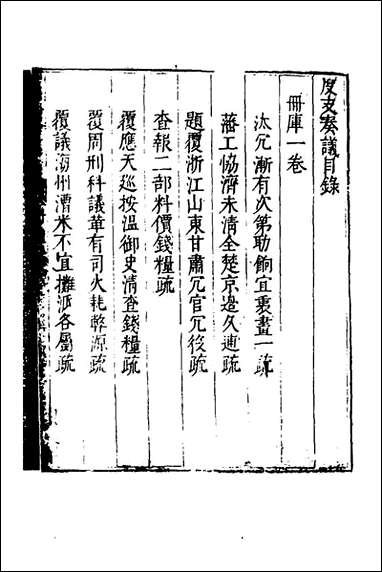 度支奏議目錄
冊庫一卷
汰冗漸有次第助餉宜裏畫一疏
藩工恊濟未清全楚京邊久逋疏
題覆浙江山東甘肅冗官冗役疏
查報二部料價錢糧疏
覆應天巡按溫御史清查錢糧疏
覆周刑科議革有司火耗弊源疏
覆議海州漕米不宜攤派各屬疏